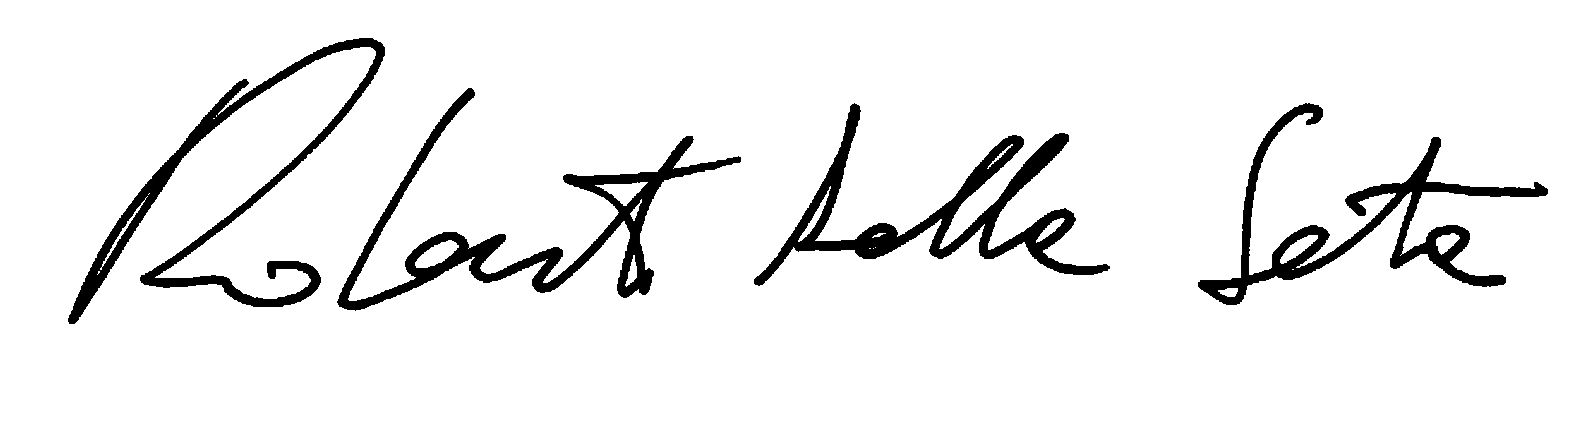 Roberto della Seta